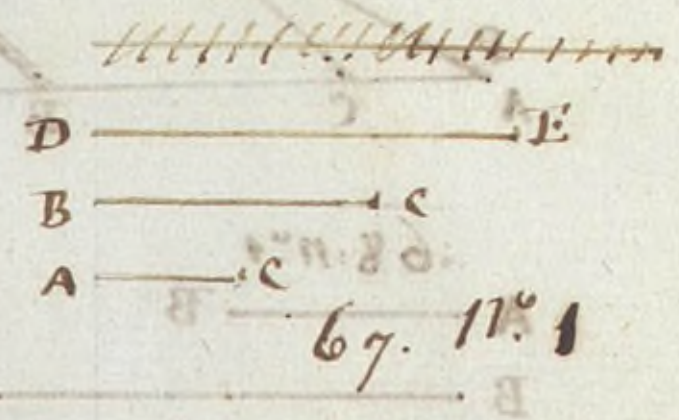 D E
B C
A C
67. n.º 1